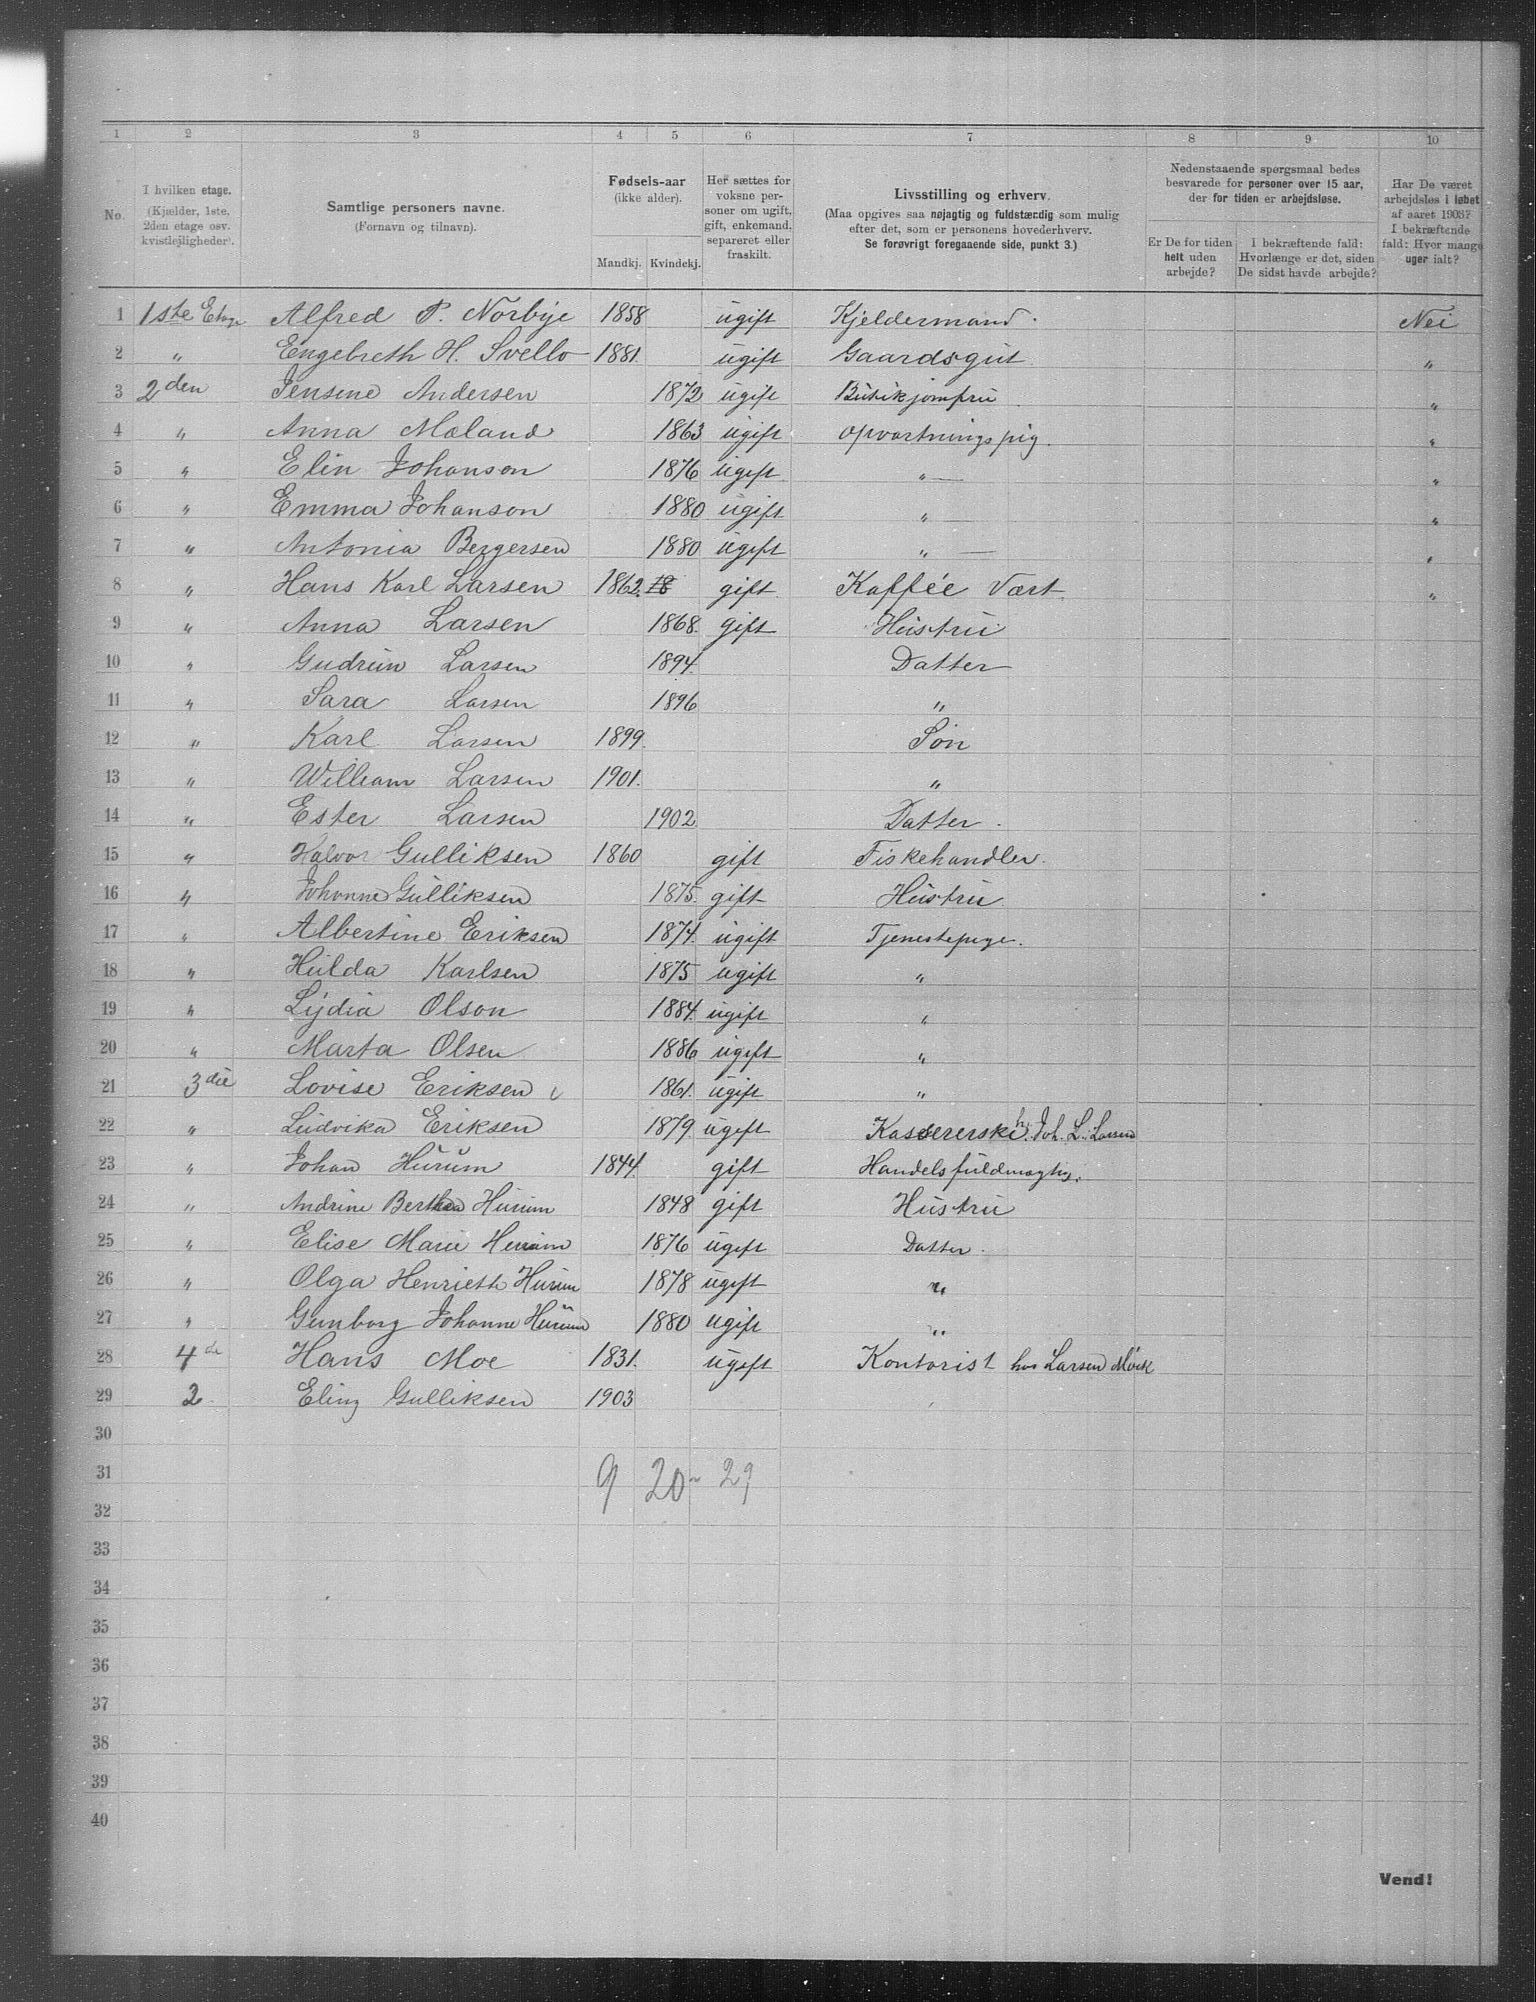 1 2 3 4 5 6 7 8 9 10
No.
I hvilken etage.
(Kjælder, 1ste, 2den etage osv. kvistlejligheder).
Samtlige personers navne.
(Fornavn og tilnavn).
Fødsels-aar
(ikke alder).
Mandkj. Kvindekj.
Her sættes for voksne personer om ugift, gift, enkemand, separeret eller fraskilt.
Livsstilling og erhverv.
(Maa opgives saa nøjagtig og fuldstændig som mulig efter det, som er personens hovederhverv.
Se forøvrigt foregaaende side, punkt 3.)
Nedenstaaende spørgsmaal bedes besvarede for personer over 15 aar, der for tiden er arbejdsløse.
Er De for tiden helt uden arbejde?
I bekræftende fald: Hvorlænge er det, siden De sidst havde arbejde?
Har De været arbejdsløs i løbet af aaret 1903? I bekræftende fald: Hvor mange uger ialt?
1 1ste Etage Alfred P. Norbye 1858 ugift Kjeldermand. Nei
2 " Engebreth H. Svello 1881. ugift Gaardsgut "
3 2den Jensine Andersen 1872 ugift Butikjomfru "
4 " Anna Mæland 1863 ugift opvartningspig. "
5 " Elin Johanson 1876 ugift " "
6 " Emma Johanson 1880 ugift " "
7 " Antonia Bergersen 1880 ugift " "
8 " Hans Karl Larsen 1862. 18 gift Kaffée Vært. "
9 " Anna Larsen 1868. gift Hustru
10 " Gudrun Larsen 1894. Datter
11 " Sara Larsen 1896 "
12 " Karl Larsen 1899. Søn
13 " William Larsen 1901. "
14 " Ester Larsen 1902 Datter.
15 " Halvor Gulliksen 1860 gift Fiskehandler.
16 " Johanne Gulliksen 1875. gift Hustru
17 " Albertine Eriksen 1874. ugift Tjenestepige.
18 " Hulda Karlsen 1875 ugift "
19 " Lydia Olson 1884. ugift "
20 " Marta Olsen 1886 ugift "
21 3die Lovise Eriksen 1861. ugift "
22 " Ludvika Eriksen 1879. ugift Kassererske h. Joh. L. Larsen
23 " Johan Hurum 1844. gift Handelsfuldmægtig.
24 " Andrine Berthea Hurum 1848 gift Hustru
25 " Elise Marie Hurum 1876 ugift Datter.
26 " Olga Henrieth Hurum 1878 ugift "
27 " Gunborg Johanne Hurum 1880 ugift "
28 4de Hans Moe 1831. ugift Kontorist hos Larsen Mørk
29 2. Eling Gulliksen 1903
30
31 9 20 - 29
32
33
34
35
36
37
38
39
40
Vend!